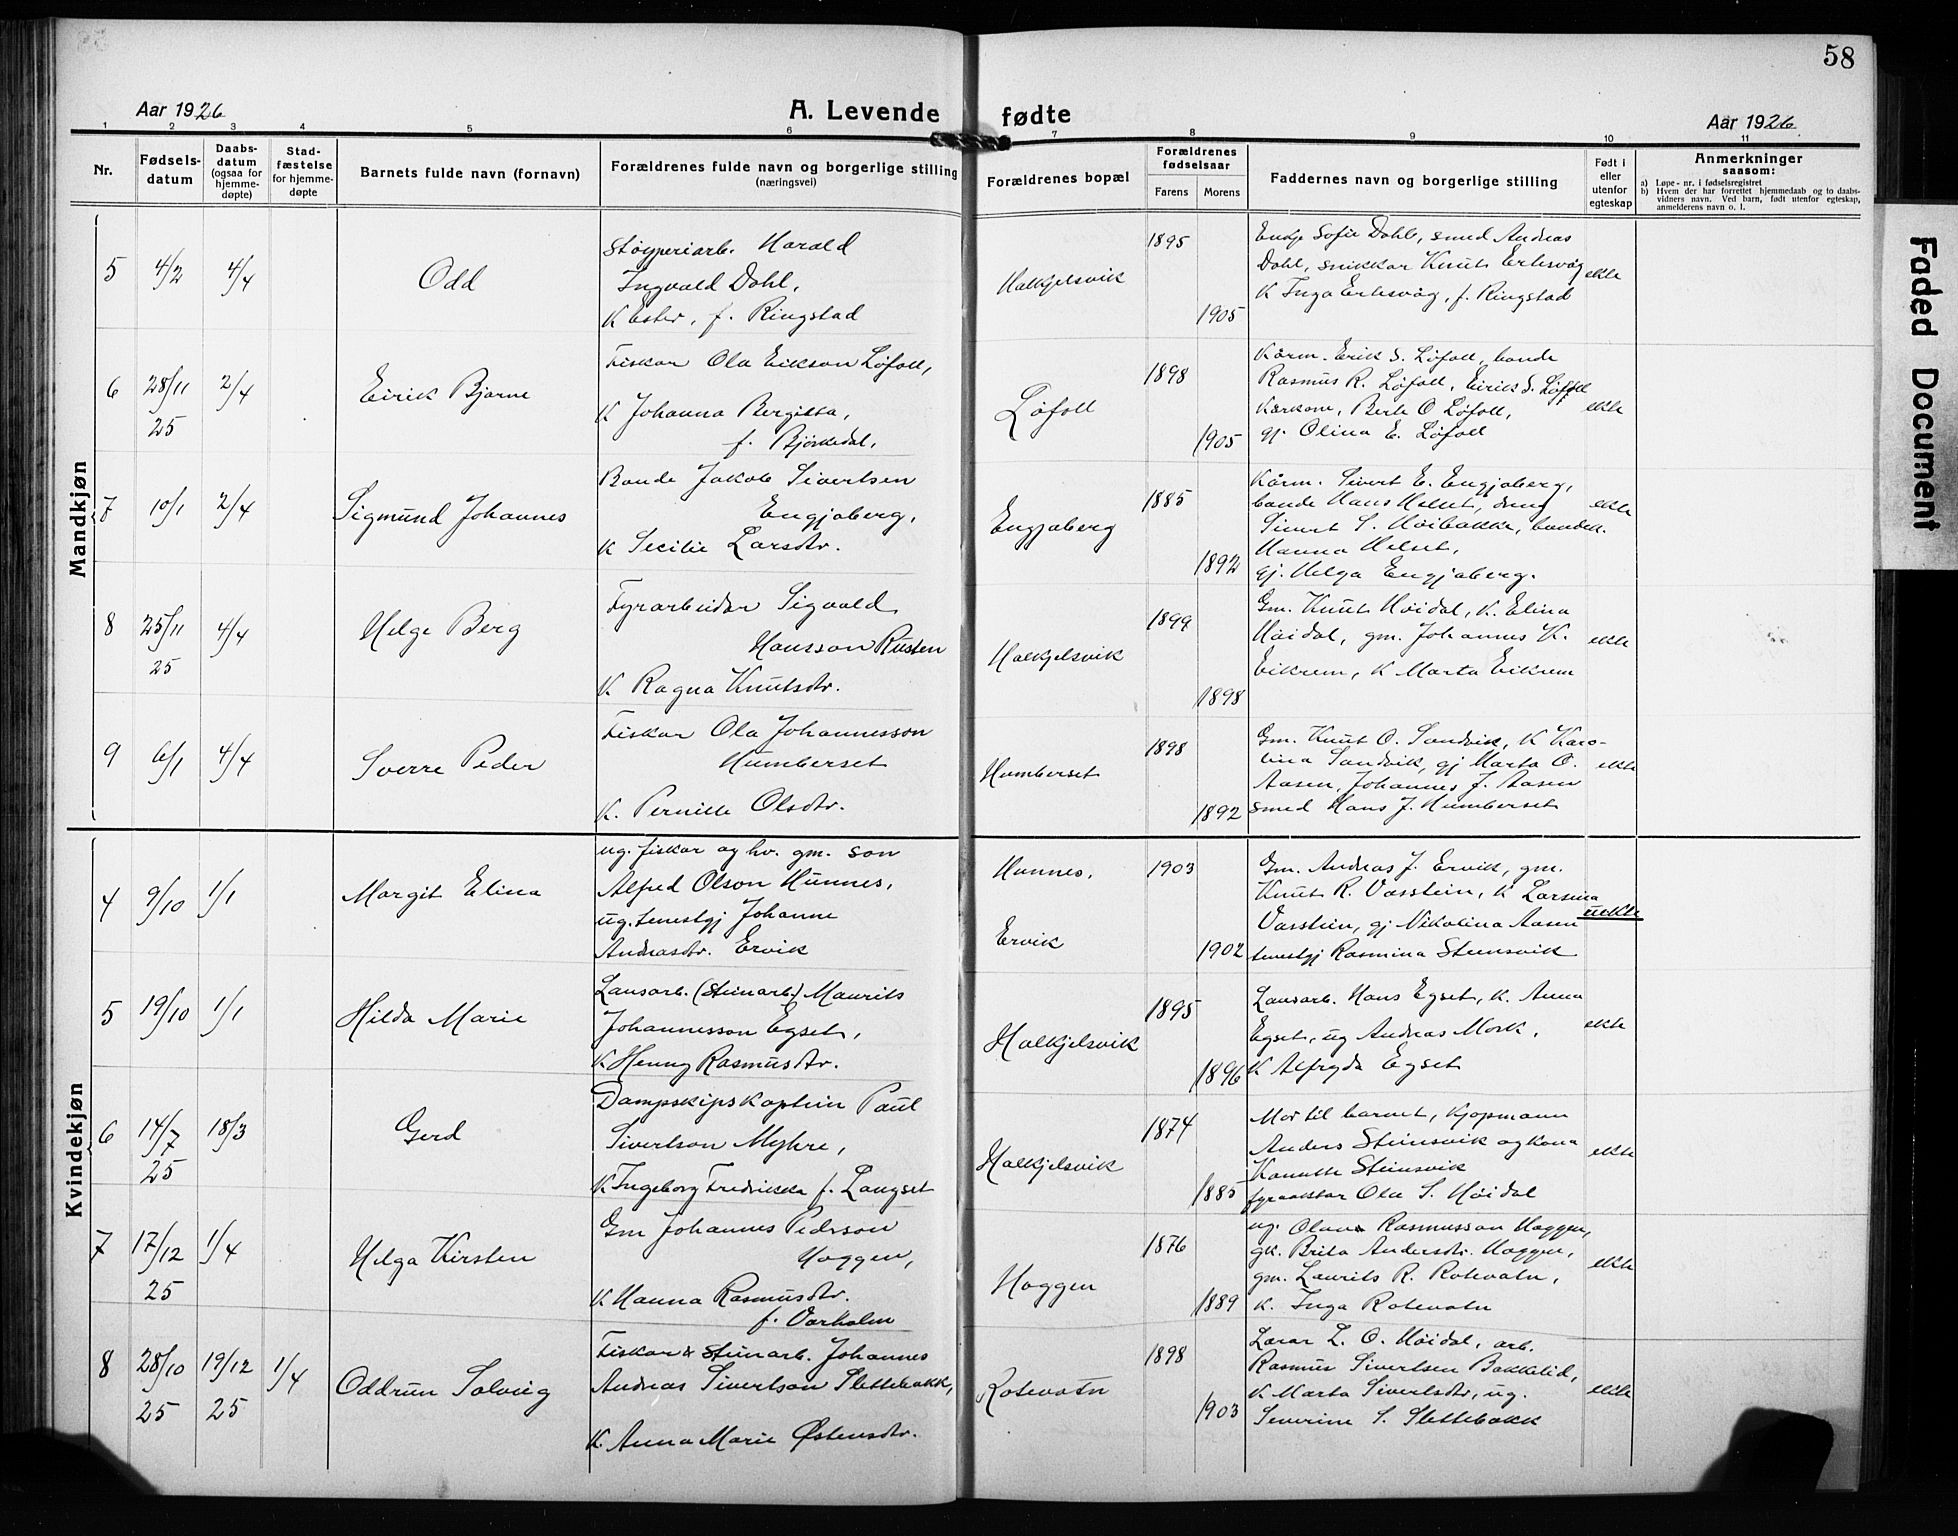 58
Aar 1926
A. Levende fødte
Aar 1926
1 2 3 4 5 6 7 8 9 10 11
Nr.
Fødsels-
datum
Daabs-
datum
(ogsaa for
hjemme-
døpte)
Stad-
fæstelse
for hjemme-
døpte
Barnets fulde navn (fornavn)
Forældrenes fulde navn og borgerlige stilling
(næringsvei)
Forældrenes bopæl
Forældrenes
fødselsaar
Farens
Morens
Faddernes navn og borgerlige stilling
Født i
eller
utenfor
egteskap
Anmerkninger
saasom:
a) Løpe-nr. i fødselsregistret
b) Hvem der har forrettet hjemmedaab og to daabs-
vidners navn. Ved barn, født utenfor egteskap,
anmelderens navn o. l.
Faded Document
Mandkjøn
5 4/2 4/4 Odd
Støyperiarb. Harald
Ingvald Dahl,
K Ester, f. Ringstad
Halkjelsvik
1895
1905
Enkje Sofie Dahl, smed Andreas
Dahl, snikkar Knut Ertesvåg
K Inga Ertesvåg, f. Ringstad
ekte
6 28/11 25 2/4 Eirik Bjarne
Fiskar Ola Eikson Løfoll,
K Johanna Bergitta,
f. Bjørkedal,
Løfoll
1898
1905
Kårm. Erik S. Løfoll, bonde
Rasmus R. Løfoll, Eirik S. Løfoll
Kårkone, Berte O Løfoll,
gj. Olina E. Løfoll
ekte
7 10/1 2/4 Sigmund Johannes
Bonde Jakob Sivertsen
Engjaberg,
K Secilie Larsdtr.
Engjaberg
1885
1892
Kårm. Sivert E. Engjaberg,
bonde Hans Helset, dreng
Sivert S. Høibakke, bondek.
Hanna Helset,
gj. Helga Engjaberg.
ekte
8 25/11 25 4/4 Helge Berg
Fyrarbeidar Sigvald
Hansson Rusten
K Ragna Knutsdtr.
Halkjelsvik
1899
1898
Gm. Knut Høidal, K. Elina
Høidal, gm. Johannes K.
Eikrem, K Marta Eikrem
ekte
9 6/1 4/4 Sverre Peder
Fiskar Ola Johannesson
Humberset
K. Pernille Olsdtr.
Humberset
1898
1892
Gm. Knut O. Sandvik, K Karo-
lina Sandvik, gj Marta O.
Aasen, Johannes J. Aasen
smed Hans J. Humberset
ekte
Kvindekjøn
4 9/10 1/1 Margit Elina
ug. fiskar og hv. gm. son
Alfred Olson Hunnes,
ug. tenestgj Johanne
Andreasdtr. Ervik
Hunnes,
Ervik
1903
1902
Gm. Andreas J. Ervik, gm.
Knut R. Vasstein, K Larsina
Vasstein, gj Nikolina Aasen
tenestgj Rasmina Steinsvik
uekte
5 19/10 1/1 Hilda Marie
Lausarb. (steinarb.) Maurits
Johannesson Egset,
K Henny Rasmusdtr.
Halkjelsvik
1895
1896
Lausarb. Hans Egset, K. Anna
Egset, ug Andreas Mork,
K Alfryda Egset
ekte
6 14/7 25 18/3 Gerd
Dampskipskaptein Paul
Sivertson Myhre,
K Ingeborg Fredrikka f. Langset
Halkjelsvik
1874
1885
Mor til barnet, Kjøpmann
Anders Steinsvik og kona
Kanutte Steinsvik
fyraktar Ola S. Høidal
ekte
7 17/12 25 1/4 Helga Kirsten
Gm Johannes Pederson
Hoggen,
K Hanna Rasmusdtr.
f. Varholm
Hoggen
1876
1889
ug. Olana Rasmusson Hoggen,
gk. Brita Andersdtr. Hoggen,
gm. Laurits R. Rotevatn,
K. Inga Rotevatn
ekte
8 28/10 25 19/12 25 1/4 Oddrun Solveig
Fiskar & steinarb. Johannes
Andreas Sivertson Slettebakk,
K. Anna Marie Østensdtr.
Rotevatn
1898
1903
Lærar L. O. Høidal, arb.
Rasmus Sivertsen Bakkelid,
K Marta Sivertsdtr, ug.
Severine S. Slettebakk
ekte